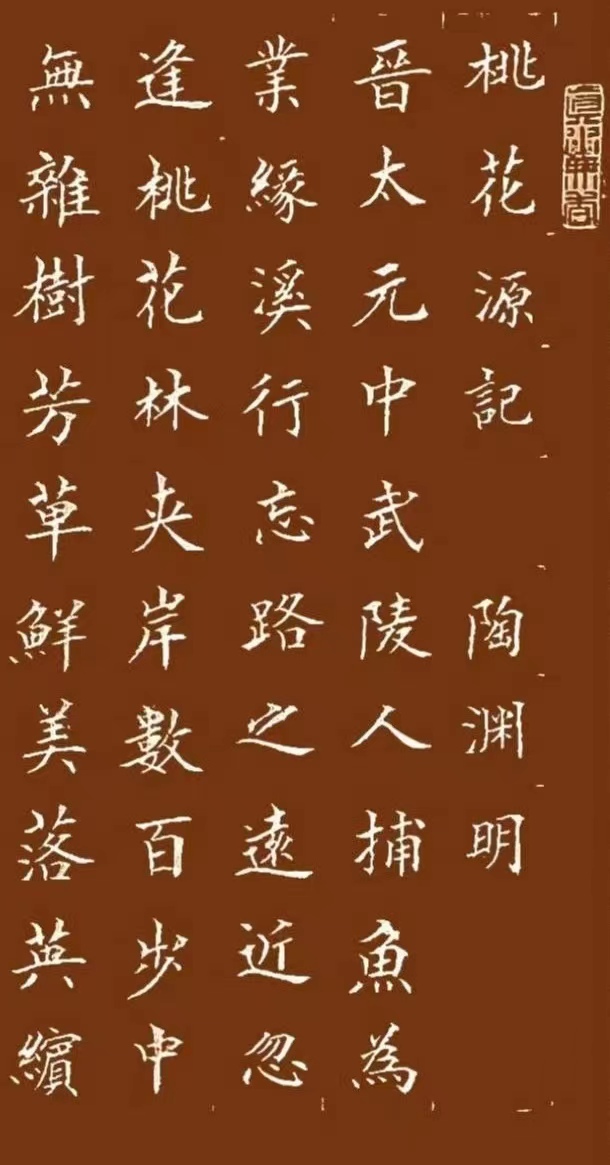 桃花源記 陶渊明
晉太元中武陵人捕魚為
業緣溪行忘路之遠近忽
逢桃花林夾岸數百步中
無雜樹芳草鮮美落英繽